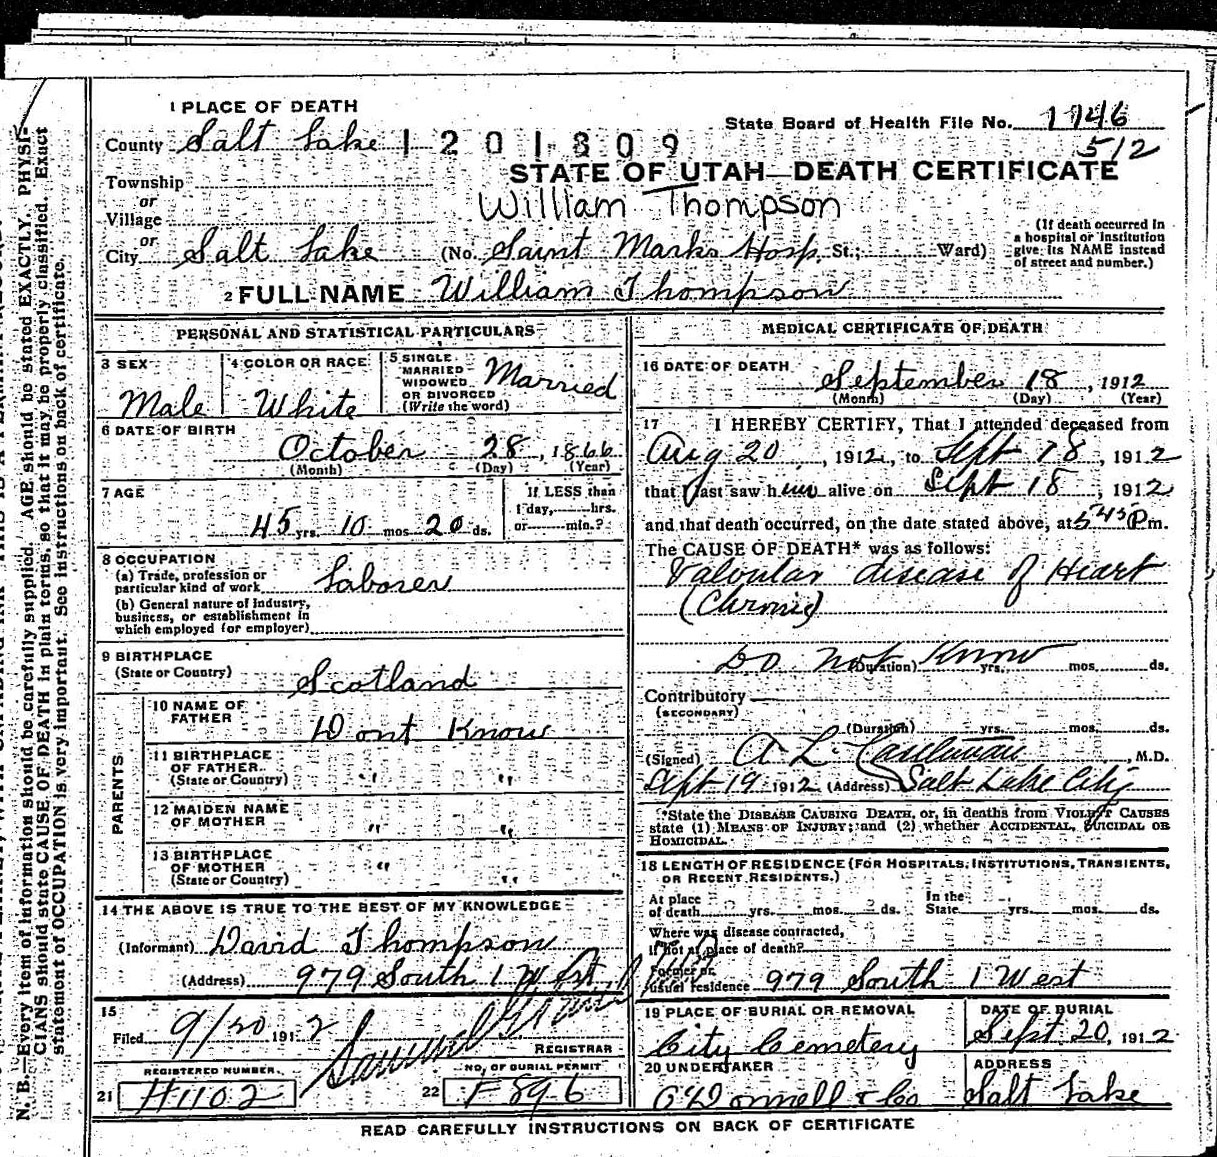 1 PLACE OF DEATH
County Salt Lake
1201809
State Board of Health File No. 1746
512
STATE OF UTAH—DEATH CERTIFICATE
Township
or
Village
or
William Thompson
City Salt Lake (No. Saint Marks Hosp. St.; Ward)
(If death occurred in
a hospital or institution
give its NAME instead
of street and number.)
2 FULL NAME William Thompson
PERSONAL AND STATISTICAL PARTICULARS
3 SEX
Male
4 COLOR OR RACE
White
5 SINGLE
MARRIED
WIDOWED
OR DIVORCED
(Write the word)
Married
6 DATE OF BIRTH
October 28, 1866
(Month) (Day) (Year)
7 AGE
45 yrs. 10 mos. 20 ds.
If LESS than
1 day, hrs.
or min.?
8 OCCUPATION
(a) Trade, profession or
particular kind of work Laborer
(b) General nature of industry,
business, or establishment in
which employed (or employer)
9 BIRTHPLACE
(State or Country)
Scotland
PARENTS
10 NAME OF
FATHER
Dont Know
11 BIRTHPLACE
OF FATHER
(State or Country) " "
12 MAIDEN NAME
OF MOTHER " "
13 BIRTHPLACE
OF MOTHER
(State or Country) " "
14 THE ABOVE IS TRUE TO THE BEST OF MY KNOWLEDGE
(Informant) David Thompson
(Address) 979 South 1 West
15
Filed 9/20 1912
REGISTRAR
REGISTERED NUMBER.
21 H1102
NO. OF BURIAL PERMIT
22 F896
MEDICAL CERTIFICATE OF DEATH
16 DATE OF DEATH
September 18, 1912
(Month) (Day) (Year)
17 I HEREBY CERTIFY, That I attended deceased from
Aug 20, 1912, to Sept 18, 1912
that I last saw him alive on Sept 18, 1912
and that death occurred, on the date stated above, at 5 45 P.m.
The CAUSE OF DEATH* was as follows:
Valvular disease of Heart
(Chronic)
Do not Know
(Duration) yrs. mos. ds.
Contributory
(SECONDARY)
(Duration) yrs. mos. ds.
(Signed) A L Castleman, M.D.
Sept 19 1912 (Address) Salt Lake City
*State the DISEASE CAUSING DEATH, or, in deaths from VIOLENT CAUSES
state (1) MEANS OF INJURY; and (2) whether ACCIDENTAL, SUICIDAL OR
HOMICIDAL.
18 LENGTH OF RESIDENCE (FOR HOSPITALS, INSTITUTIONS, TRANSIENTS,
OR RECENT RESIDENTS.)
At place
of death yrs. mos. ds.
In the
State yrs. mos. ds.
Where was disease contracted,
if not at place of death?
Former or
usual residence 979 South 1 West
19 PLACE OF BURIAL OR REMOVAL
City Cemetery
DATE OF BURIAL
Sept 20, 1912
20 UNDERTAKER
O'Donnell & Co
ADDRESS
Salt Lake
READ CAREFULLY INSTRUCTIONS ON BACK OF CERTIFICATE
N. B.—Every item of information should be carefully supplied. AGE should be stated EXACTLY. PHYSI-
CIANS should state CAUSE OF DEATH in plain terms, so that it may be properly classified. Exact
statement of OCCUPATION is very important. See instructions on back of certificate.